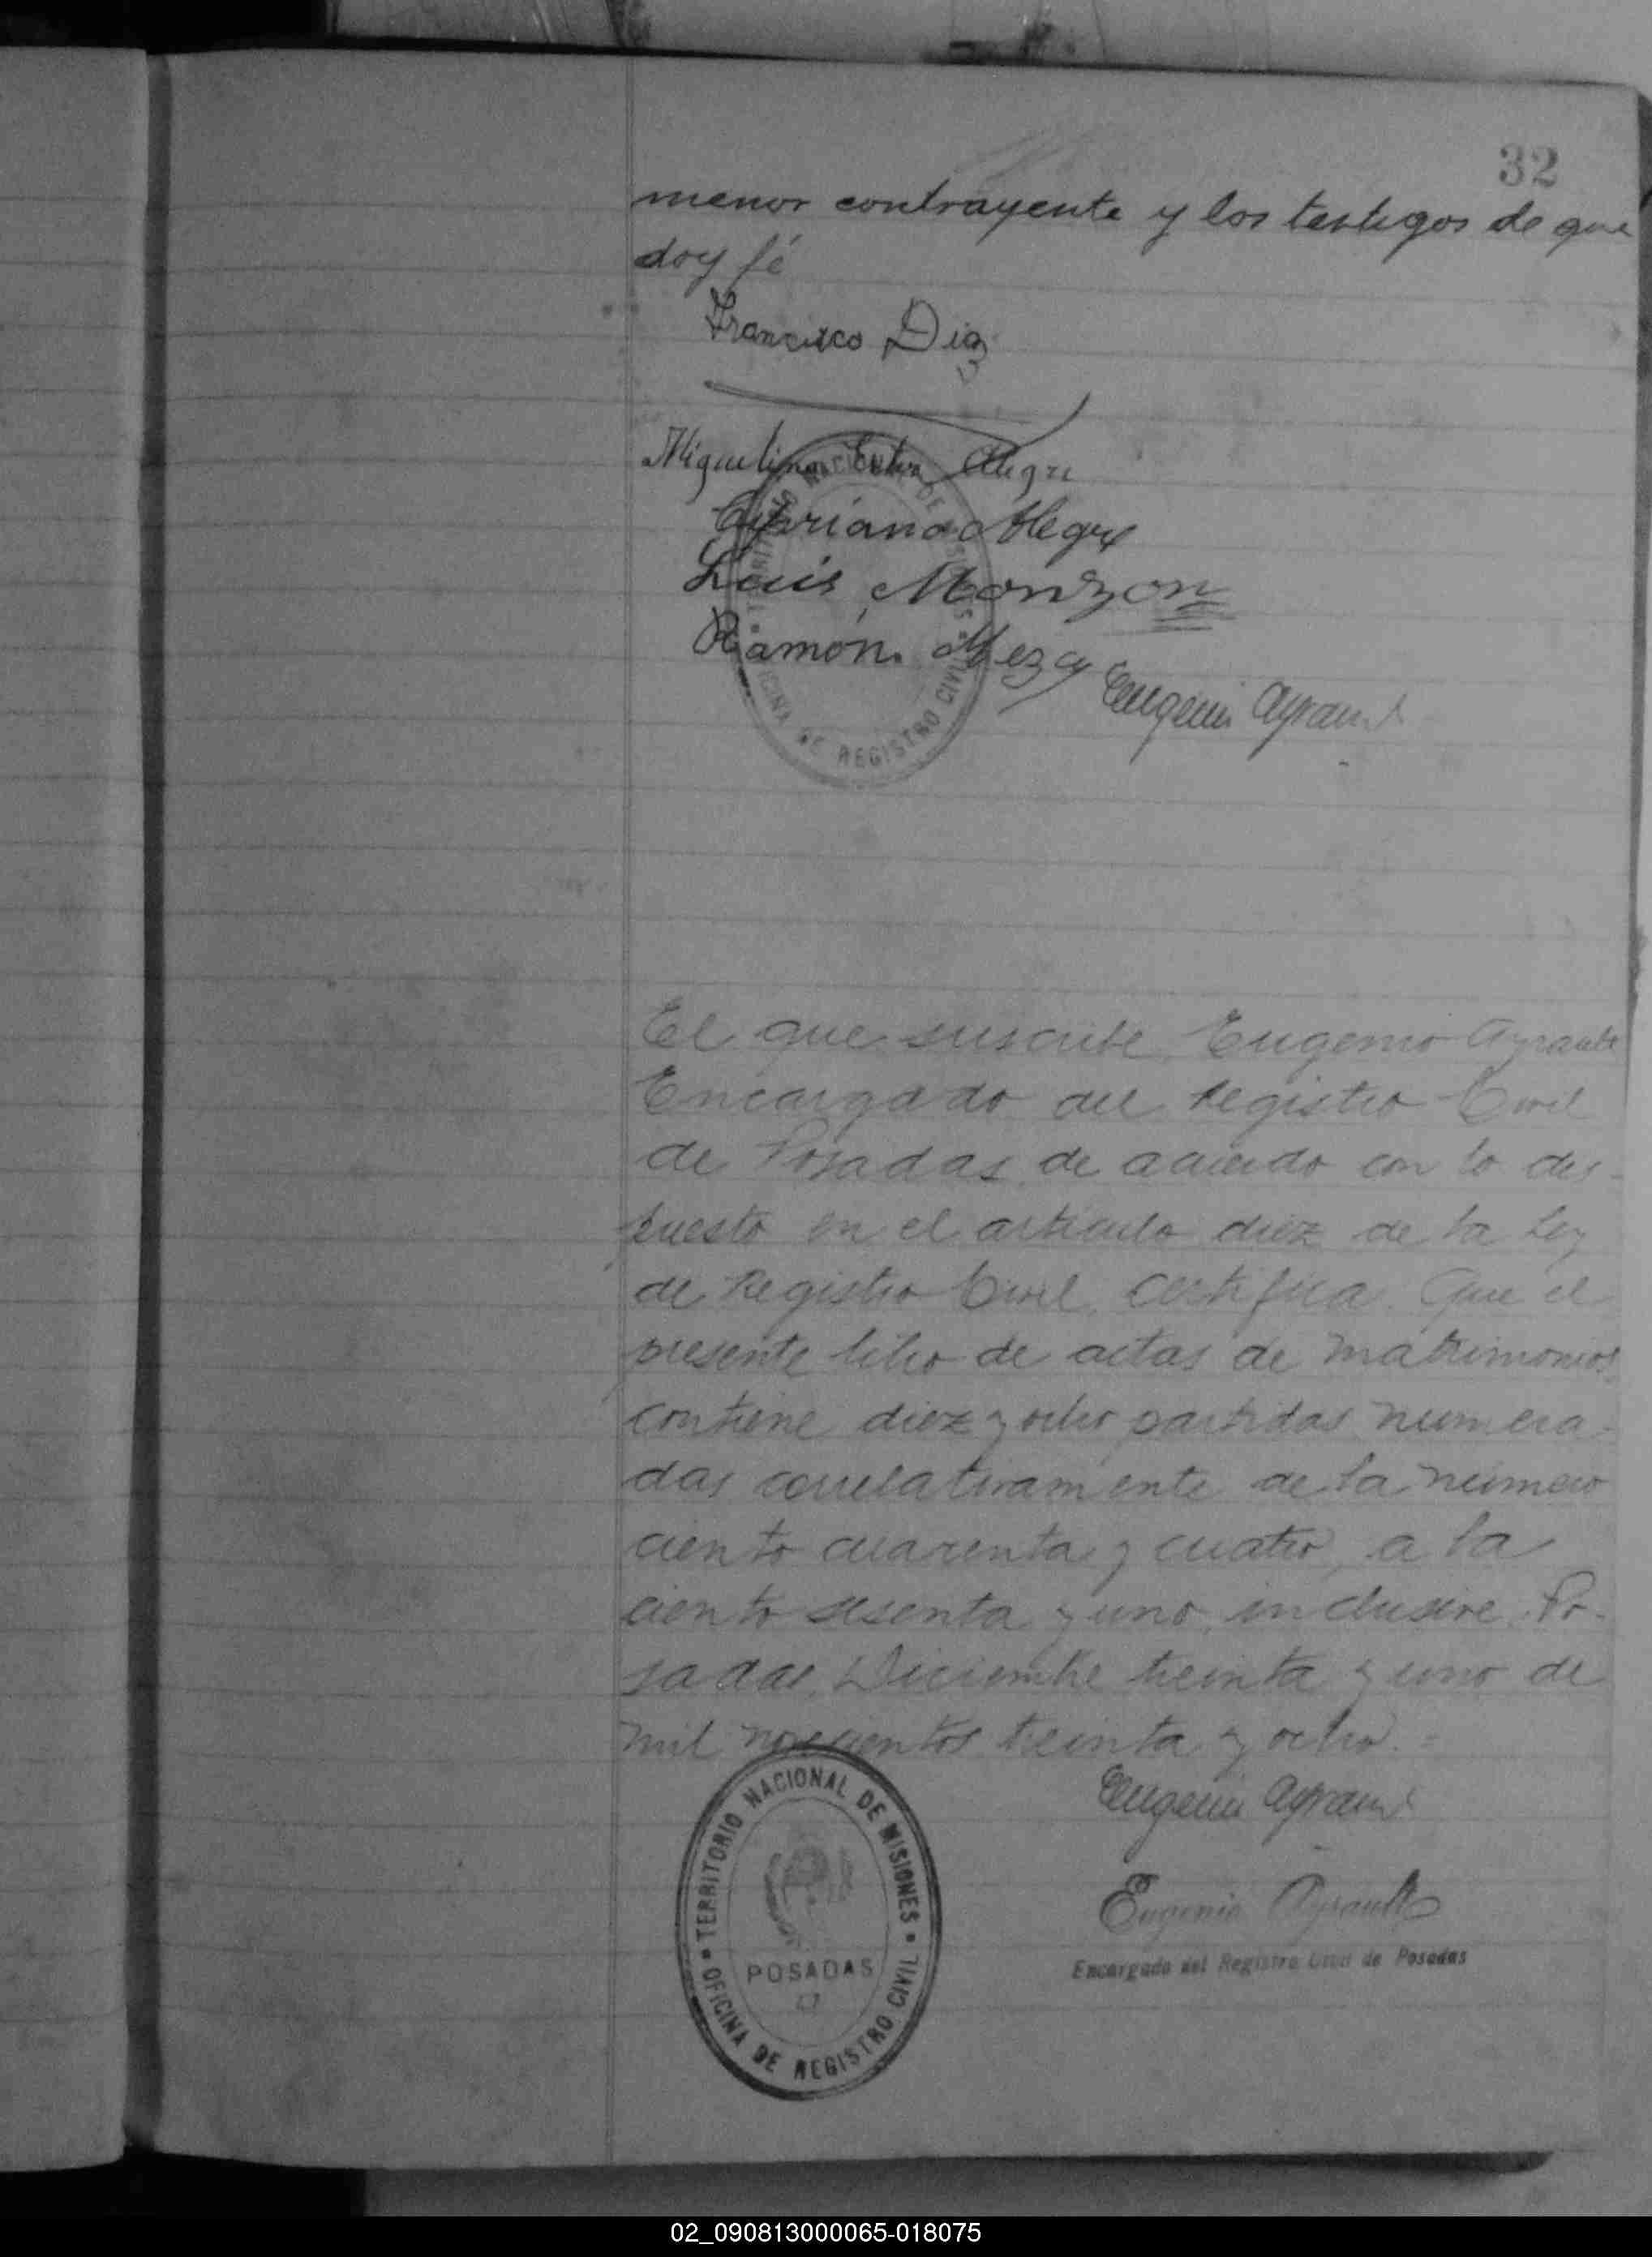 32
menor contrayente y los testigos de que
doy fé
Francisco Diaz
Miguelina Ester Alegre
Cipriano Alegre
Luis Monzon
Ramón Meza
Eugenio Ayrault
TERRITORIO NACIONAL DE MISIONES
OFICINA DE REGISTRO CIVIL
El que suscribe Eugenio Ayrault
Encargado del Registro Civil
de Posadas, de acuerdo con lo dis-
puesto en el articulo diez de la Ley
de Registro Civil, Certifica. Que el
presente libro de actas de matrimonios
contiene diez y ocho partidas numera-
das correlativamente de la número
ciento cuarenta y cuatro, a la
ciento sesenta y uno, inclusive. Po-
sadas, Diciembre treinta y uno de
mil novecientos treinta y ocho. =
Eugenio Ayrault
Eugenio Ayrault
Encargado del Registro Civil de Posadas
TERRITORIO NACIONAL DE MISIONES
POSADAS
OFICINA DE REGISTRO CIVIL
02_090813000065-018075